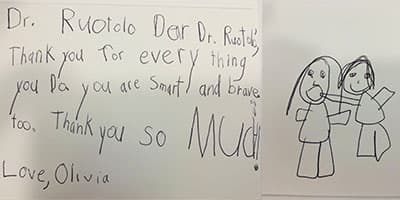 Dr. Ruotolo Dear Dr. Ruotolo,
Thank you for every thing
you Do you are Smart and brave
too. Thank you so MUCH!
Love, Olivia